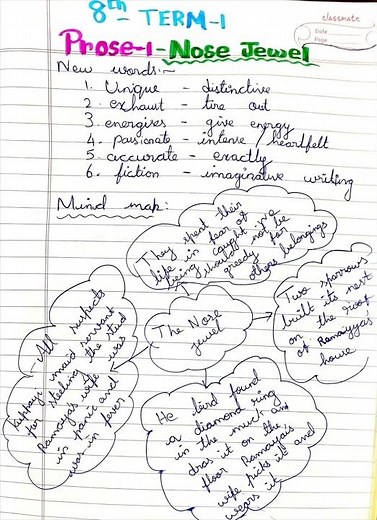 8th - TERM-1
classmate
Date
Page
Prose-1 - Nose Jewel
New words:-
1. Unique - distinctive
2. exhaust - tire out
3. energises - give energy
4. passionate - intense / heartfelt
5. accurate - exactly
6. fiction - imaginative writing
Mind map:
They spent their
life in fear of
being caught in
should not be
greedy for
others belongings
Two sparrows
built its nest
on the roof
of Ramaiyya's
house
The Nose
jewel
All suspects
Kuppayi maid servant
for stealing the stud
Ramaya's wife was
in panic and
was in fever
He bird found
a diamond ring
in the much and
dros it on the
floor Ramaya's
wife picks it and
wears it.